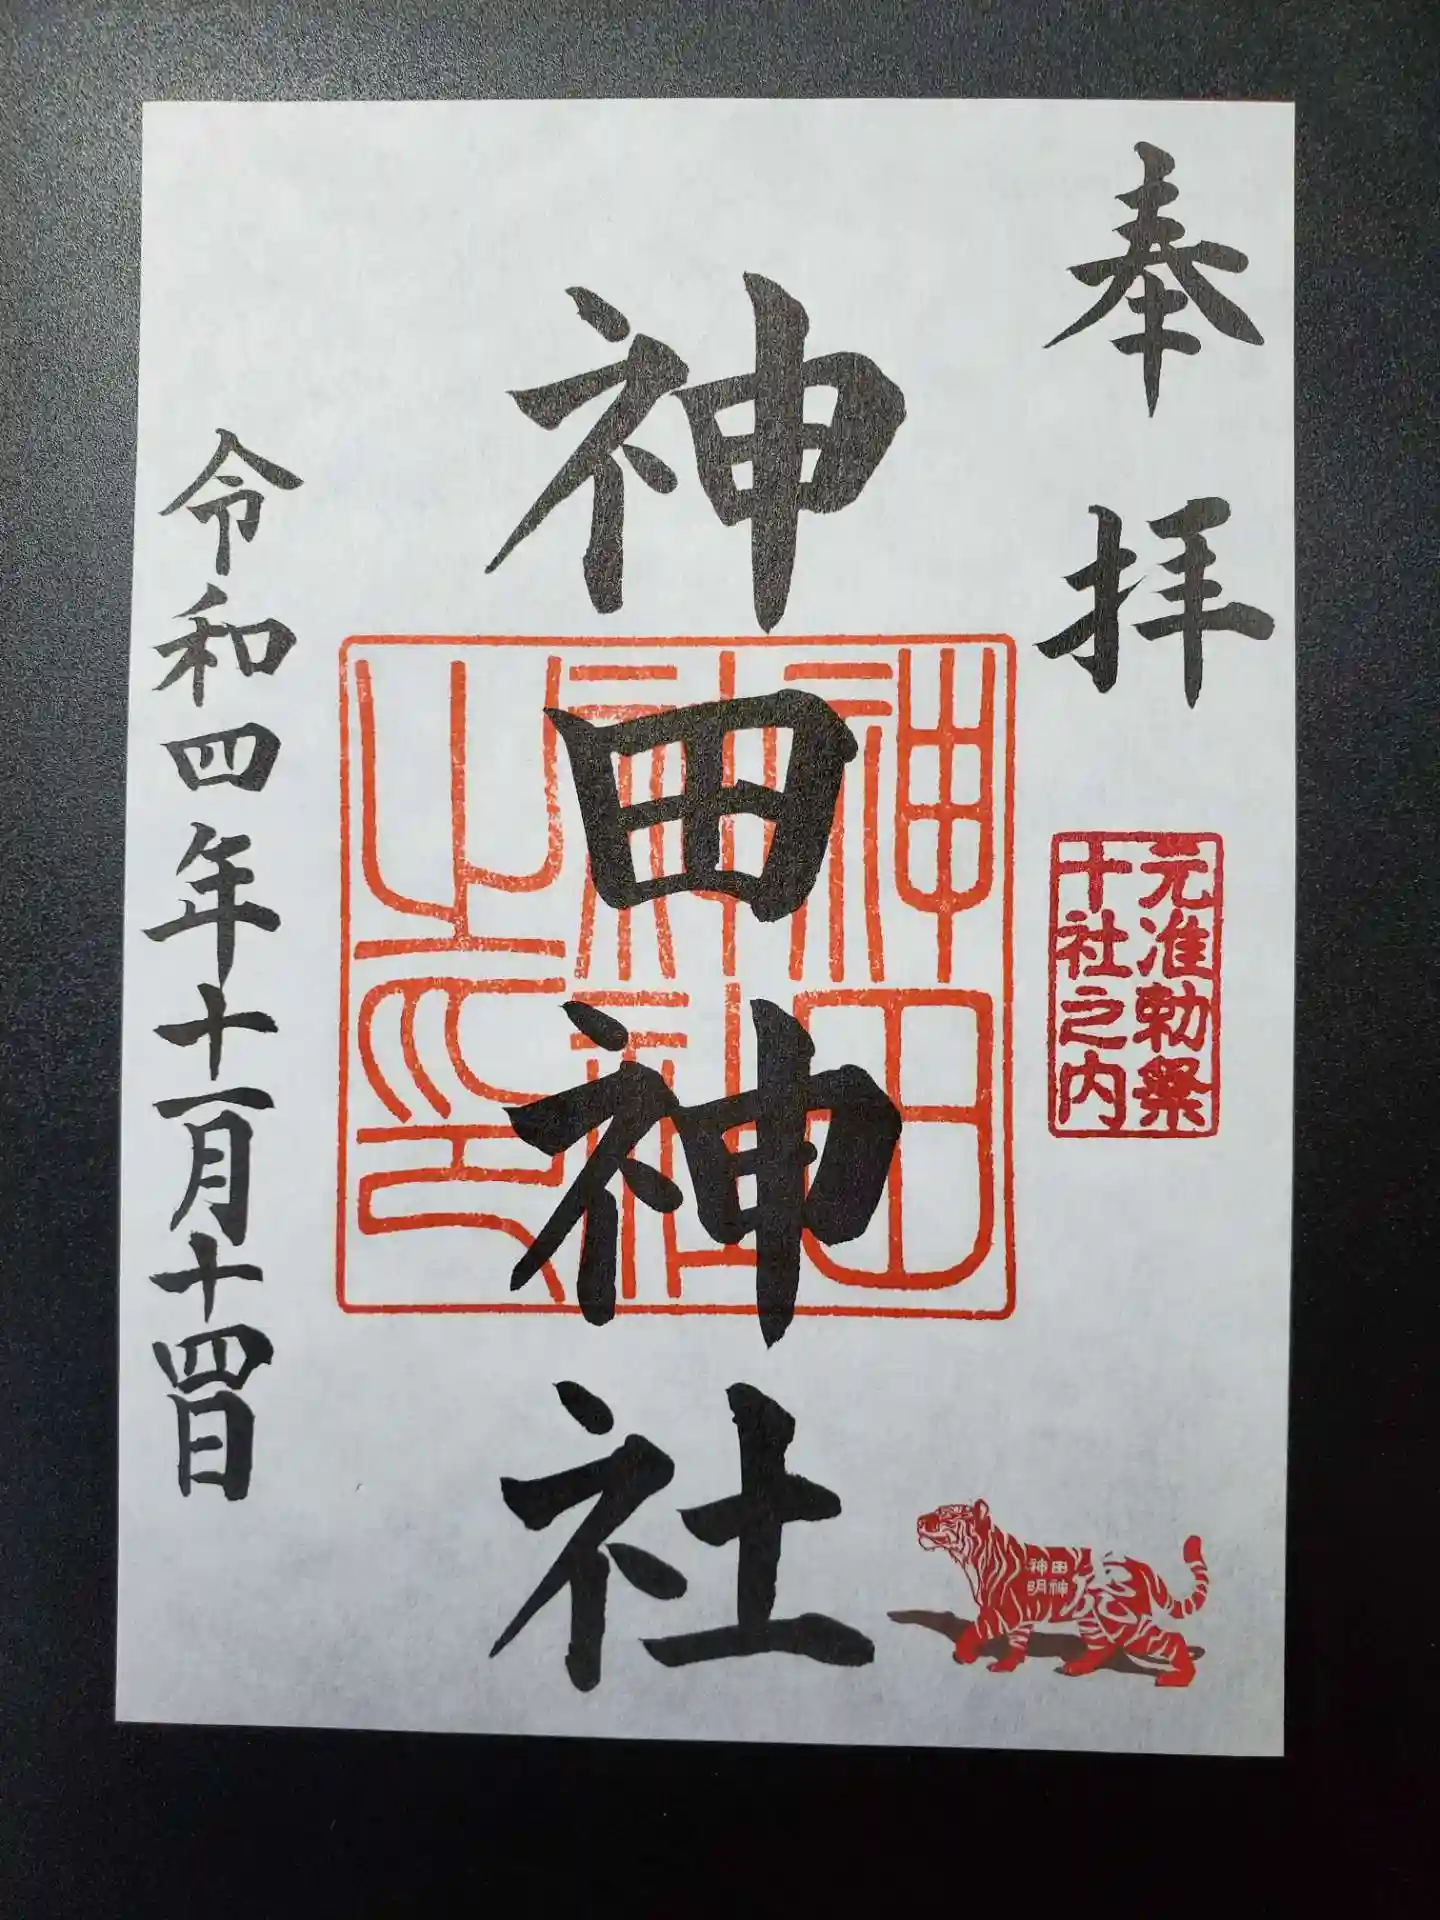 奉拝
元准勅祭
十社之内
神田神社
神田
神社
之印
令和四年十一月十四日
神田
明神